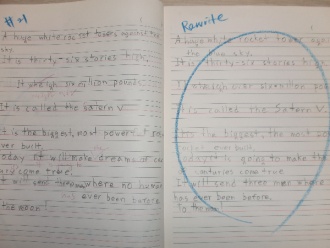 #1
A huge white rocket towers against the
sky.
It is thirty-six stories high.
It weighs six million pounds.
It is called the Saturn V.
It is the biggest, most powerful
ever built.
Today it will make dreams of
come true!
It will send where no human
ever been before
the moon!
Rewrite
A huge white rocket towers
the sky.
It is thirty-six stories
It weighs over six million
is called the Saturn V.
It is the biggest, the most
ever built.
Today it is going to make the
centuries come true
It will send three men where
has ever been before.
To the moon!